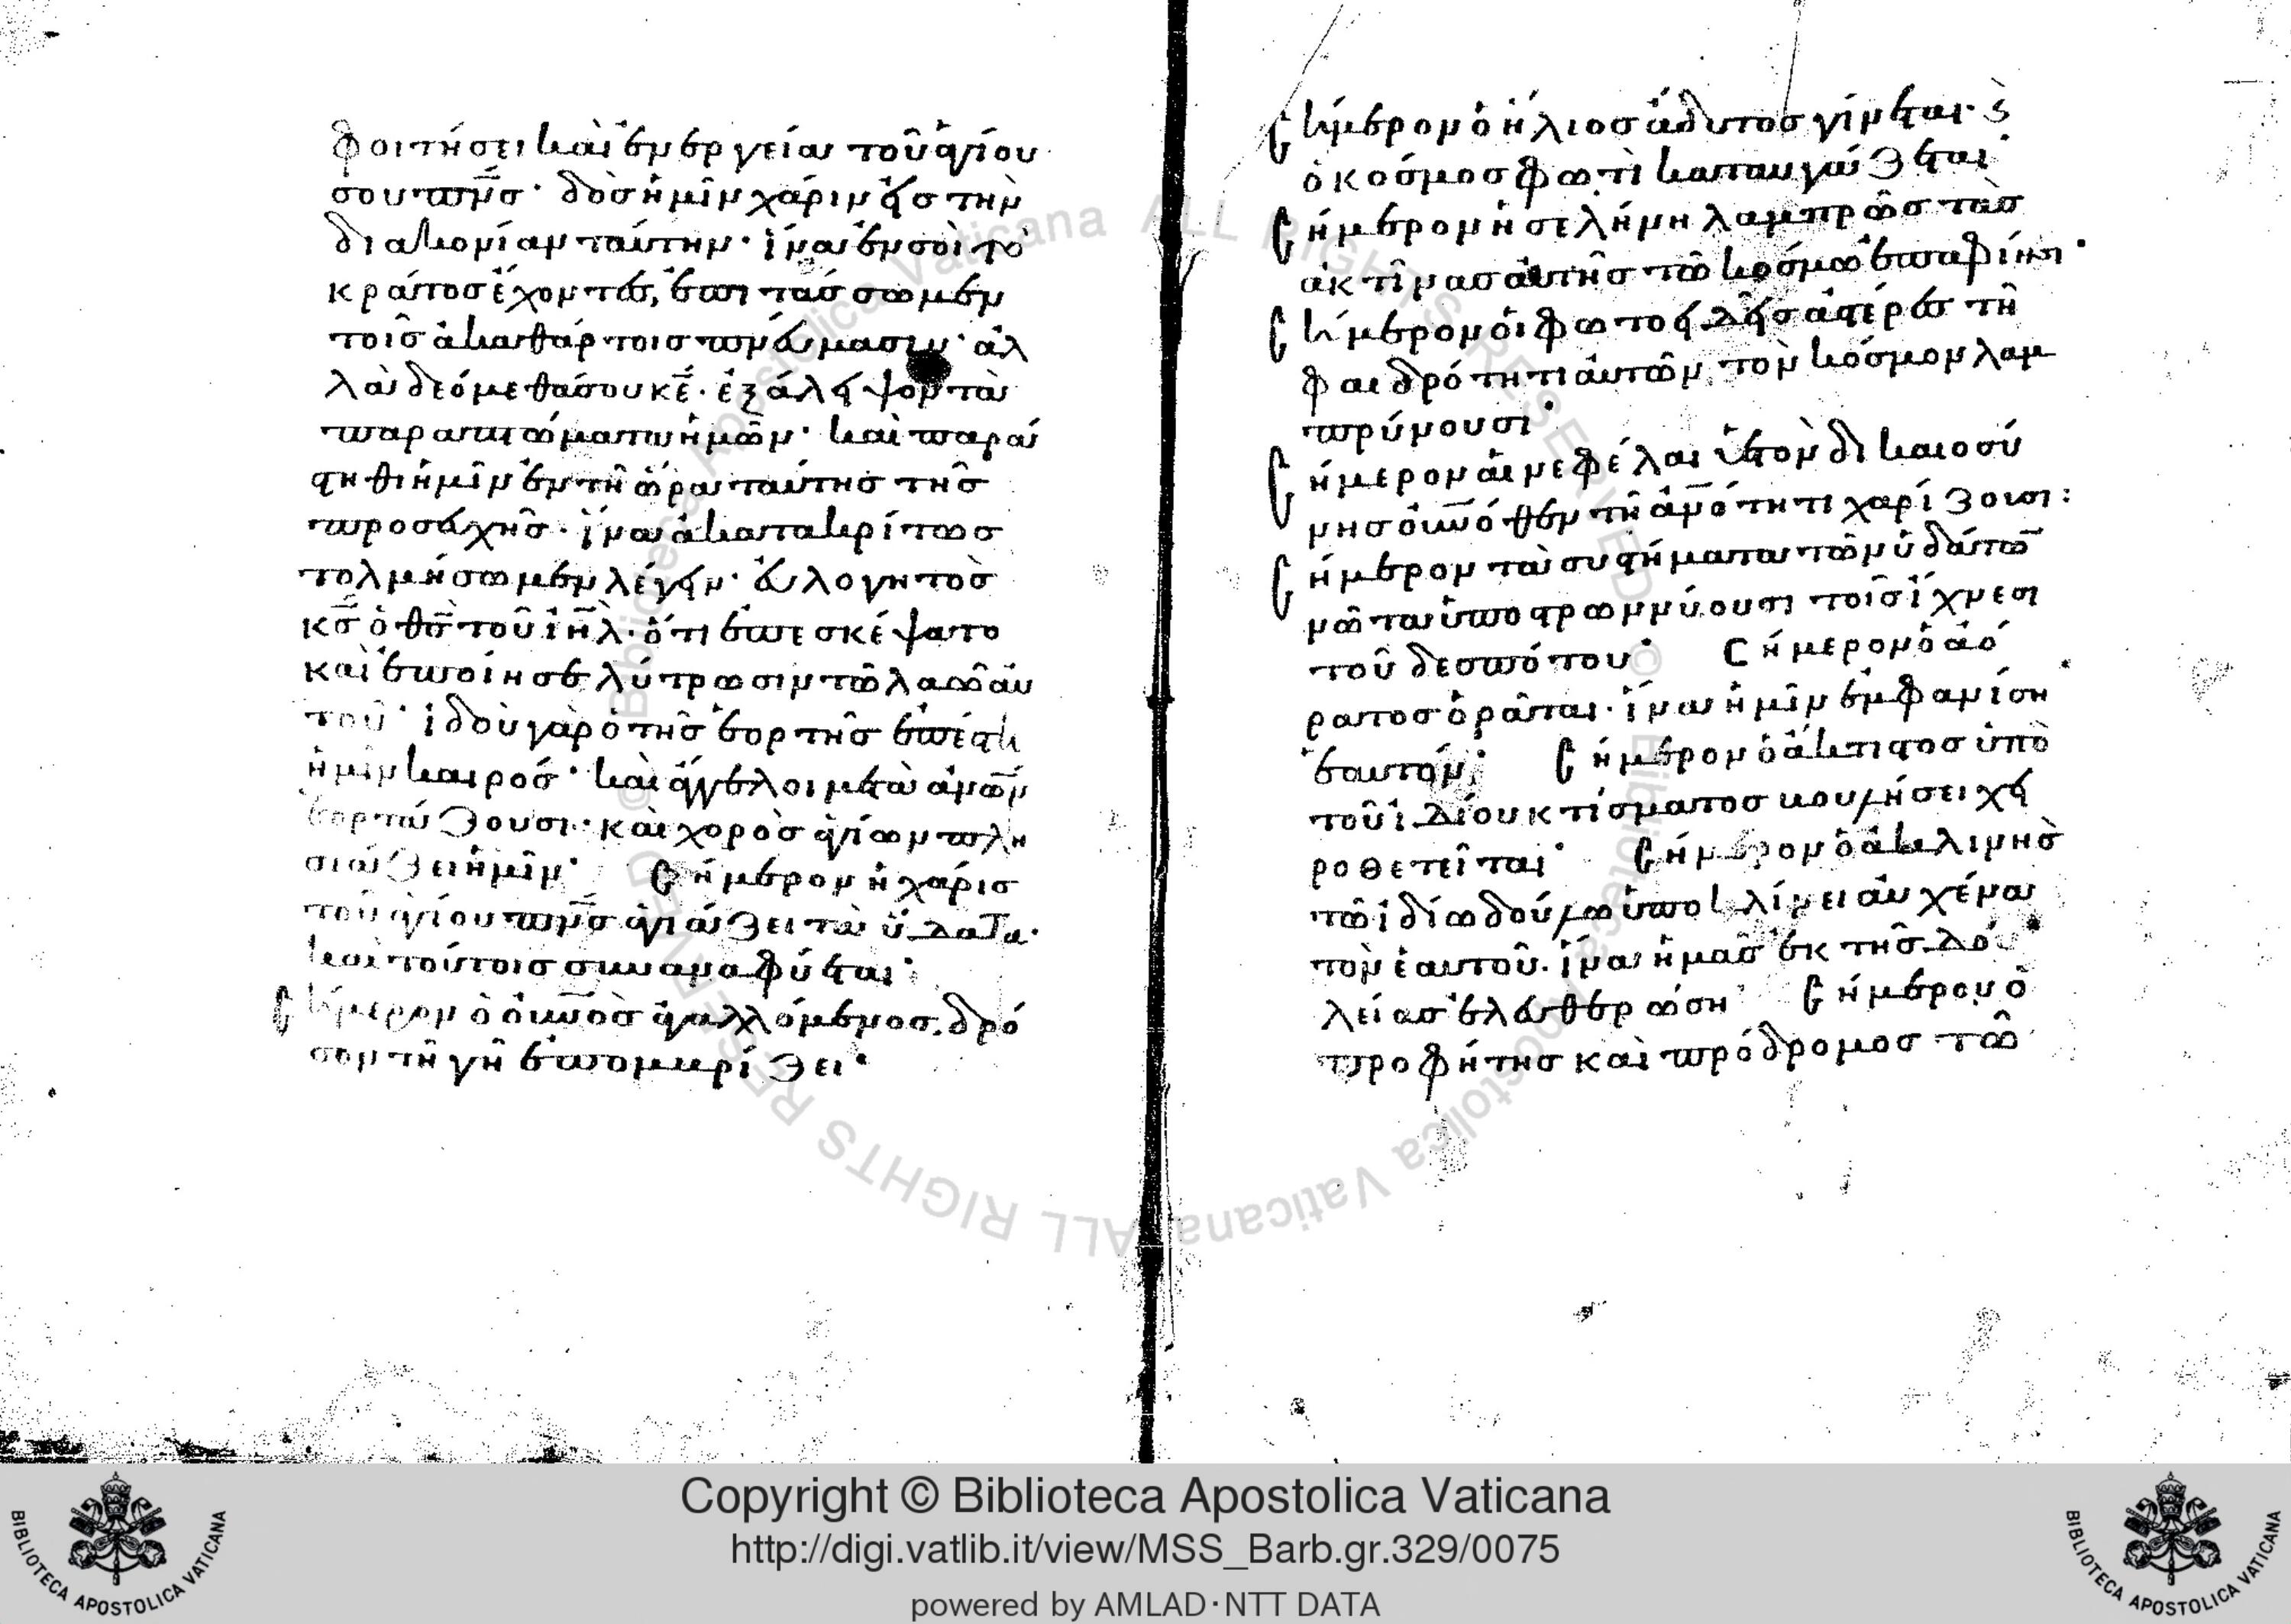 φοιτήσει καὶ ἐνεργεία τοῦ ἁγίου
σου πν̅σ· δὸσ ἡμῖν χάριν εἰσ τὴν
διακονίαν ταύτην· ἵνα ἐν σοὶ τὸ
κράτοσ ἔχοντεσ, ἐπιτάσσωμεν
τοῖσ ἀκαθάρτοισ πνεύμασιν· ἀλ
λὰ δεόμεθά σου κε̅· ἐξάλειψον τὰ
παραπτώματα ἡμῶν· καὶ παρά
στηθι ἡμῖν ἐν τῆ ὥρα ταύτησ τῆσ
προσευχῆσ· ἵνα ἀκατακρίτωσ
τολμήσωμεν λέγειν· εὐλογητὸσ
κσ̅ ὁ θσ̅ τοῦ ιη̅λ· ὅτι ἐπεσκέψατο
καὶ ἐποίησε λύτρωσιν τῶ λαῶ αὐ
τοῦ· ἰδοὺ γὰρ ὁ τῆσ ἑορτῆσ ἐπέστη
ἡμῖν καιρόσ· καὶ ἄγγελοι μετὰ ἀνω̅ν
ἑορτάζουσι· καὶ χορὸσ ἁγίων πλη
σιάζει ἡμῖν· Σήμερον ἡ χάρισ
τοῦ ἁγίου πν̅σ ἁγιάζει τὰ ὕδατα·
καὶ τούτοισ συναναφύεται·
Σήμερον ὁ οὐν̅οσ ἀγαλλόμενοσ δρό
σον τῆ γῆ ἐπομβρίζει·
Σήμερον ὁ ἥλιοσ ἄδυτοσ γίνεται· ϗ
ὁ κόσμοσ φωτὶ καταυγάζεται·
Σήμερον ἡ σελήνη λαμπρῶσ τὰσ
ἀκτῖνασ αὐτῆσ τῶ κόσμω ἐπαφίησι·
Σήμερον οἱ φωτοειδεῖσ ἀστέρεσ τῆ
φαιδρότητι αὐτῶν τὸν κόσμον λαμ
πρύνουσι·
Σήμερον αἱ νεφέλαι ὑετὸν δικαιοσύ
νησ οὐν̅όθεν τῆ ἀν̅ότητι χαρίζουσι:
Σήμερον τὰ συστήματα τῶν ὑδάτω̅
νῶτα ὑποστρωννύουσι τοῖσ ἴχνεσι
τοῦ δεσπότου· Σήμερον ὁ ἀό
ρατοσ ὁρᾶται· ἵνα ἡμῖν ἐμφανίση
ἑαυτόν· Σήμερον ὁ ἄκτιστοσ ὑπὸ
τοῦ ἰδίου κτίσματοσ βουλήσει χει
ροθετεῖται· Σήμερον ὁ ἀκλινὴσ
τῶ ἰδίω δούλω ὑποκλίνει αὐχένα
τὸν ἑαυτοῦ· ἵνα ἡμᾶσ ἐκ τῆσ δο
λείασ ἐλευθερώση· Σήμερον ὁ
προφήτησ καὶ πρόδρομοσ τῶ
Copyright © Biblioteca Apostolica Vaticana
http://digi.vatlib.it/view/MSS_Barb.gr.329/0075
powered by AMLAD·NTT DATA
BIBLIOTECA APOSTOLICA VATICANA
BIBLIOTECA APOSTOLICA VATICANA